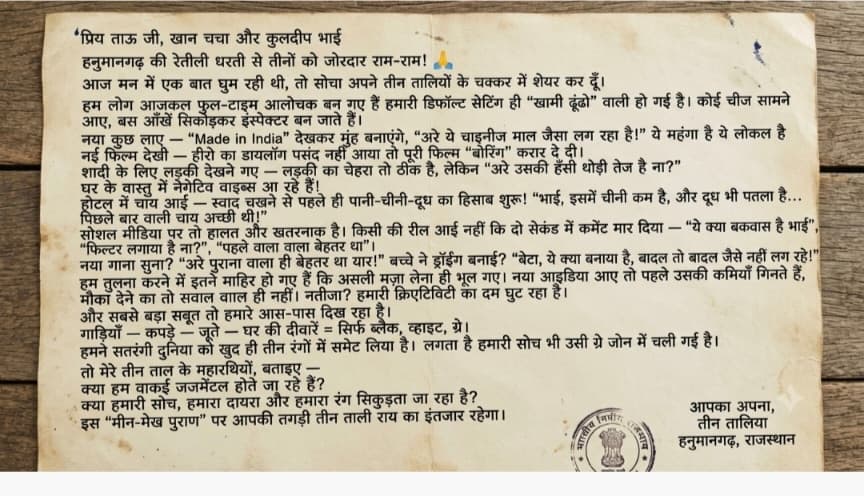 ‘प्रिय ताऊ जी, खान चचा और कुलदीप भाई
हनुमानगढ़ की रेतीली धरती से तीनों को जोरदार राम-राम! 🙏
आज मन में एक बात घुम रही थी, तो सोचा अपने तीन तालियों के चक्कर में शेयर कर दूँ।
हम लोग आजकल फुल-टाइम आलोचक बन गए हैं हमारी डिफॉल्ट सेटिंग ही “खामी ढूंढो” वाली हो गई है। कोई चीज सामने
आए, बस आँखें सिकोड़कर इंस्पेक्टर बन जाते हैं।
नया कुछ लाए — “Made in India” देखकर मुंह बनाएंगे, “अरे ये चाइनीज माल जैसा लग रहा है!” ये महंगा है ये लोकल है
नई फिल्म देखी — हीरो का डायलॉग पसंद नहीं आया तो पूरी फिल्म “बोरिंग” करार दे दी।
शादी के लिए लड़की देखने गए — लड़की का चेहरा तो ठीक है, लेकिन “अरे उसकी हँसी थोड़ी तेज है ना?”
घर के वास्तु में नेगेटिव वाइब्स आ रहे हैं!
होटल में चाय आई - स्वाद चखने से पहले ही पानी-चीनी-दूध का हिसाब शुरू! “भाई, इसमें चीनी कम है, और दूध भी पतला है...
पिछले बार वाली चाय अच्छी थी!”
सोशल मीडिया पर तो हालत और खतरनाक है। किसी की रील आई नहीं कि दो सेकंड में कमेंट मार दिया — “ये क्या बकवास है भाई”,
“फिल्टर लगाया है ना?”, “पहले वाला वाला बेहतर था”।
नया गाना सुना? “अरे पुराना वाला ही बेहतर था यार!” बच्चे ने ड्रॉईंग बनाई? “बेटा, ये क्या बनाया है, बादल तो बादल जैसे नहीं लग रहे!”
हम तुलना करने में इतने माहिर हो गए हैं कि असली मज़ा लेना ही भूल गए। नया आइडिया आए तो पहले उसकी कमियाँ गिनते हैं,
मौका देने का तो सवाल वाल ही नहीं। नतीजा? हमारी क्रिएटिविटी का दम घुट रहा है।
और सबसे बड़ा सबूत तो हमारे आस-पास दिख रहा है।
गाड़ियाँ — कपड़े — जूते — घर की दीवारें = सिर्फ ब्लैक, व्हाइट, ग्रे।
हमने सतरंगी दुनिया को खुद ही तीन रंगों में समेट लिया है। लगता है हमारी सोच भी उसी ग्रे जोन में चली गई है।
तो मेरे तीन ताल के महारथियों, बताइए —
क्या हम वाकई जजमेंटल होते जा रहे हैं?
क्या हमारी सोच, हमारा दायरा और हमारा रंग सिकुड़ता जा रहा है?
इस “मीन-मेख पुराण” पर आपकी तगड़ी तीन ताली राय का इंतजार रहेगा।
आपका अपना,
तीन तालिया
हनुमानगढ़, राजस्थान